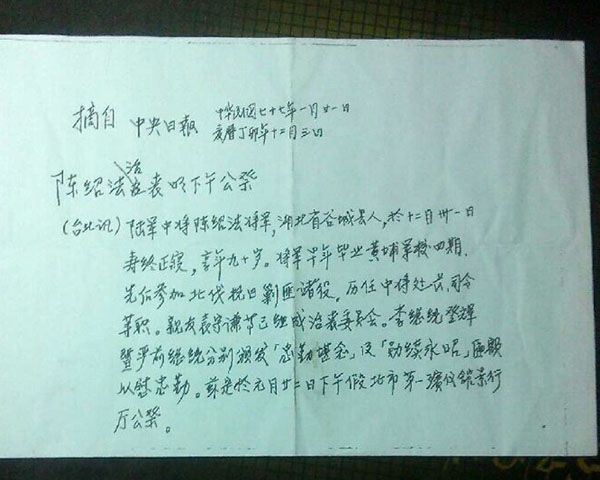 摘自 中央日報 中华民国七十七年一月廿一日
夏曆丁卯年十二月三日
陈绍法治丧明下午公祭
(台北讯)陆军中将陈绍法将军,湖北省谷城县人,於十二月卅一日
寿终正寝,享年九十岁。将军早年毕业黄埔军校四期,
先后参加北伐抗日剿匪诸役。历任中将处长、司令
等职。亲友袁守谦等已组成治丧委员会。李继统登辉
暨严前继统分别颁发「忠勤堪念」及「勋绩永昭」匾额
以慰忠勤。兹定於元月廿二日下午假北市第一殡仪馆景行
厅公祭。